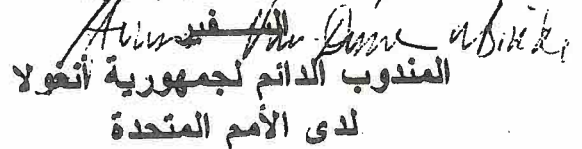 السفير
المندوب الدائم لجمهورية أنغولا
لدى الأمم المتحدة